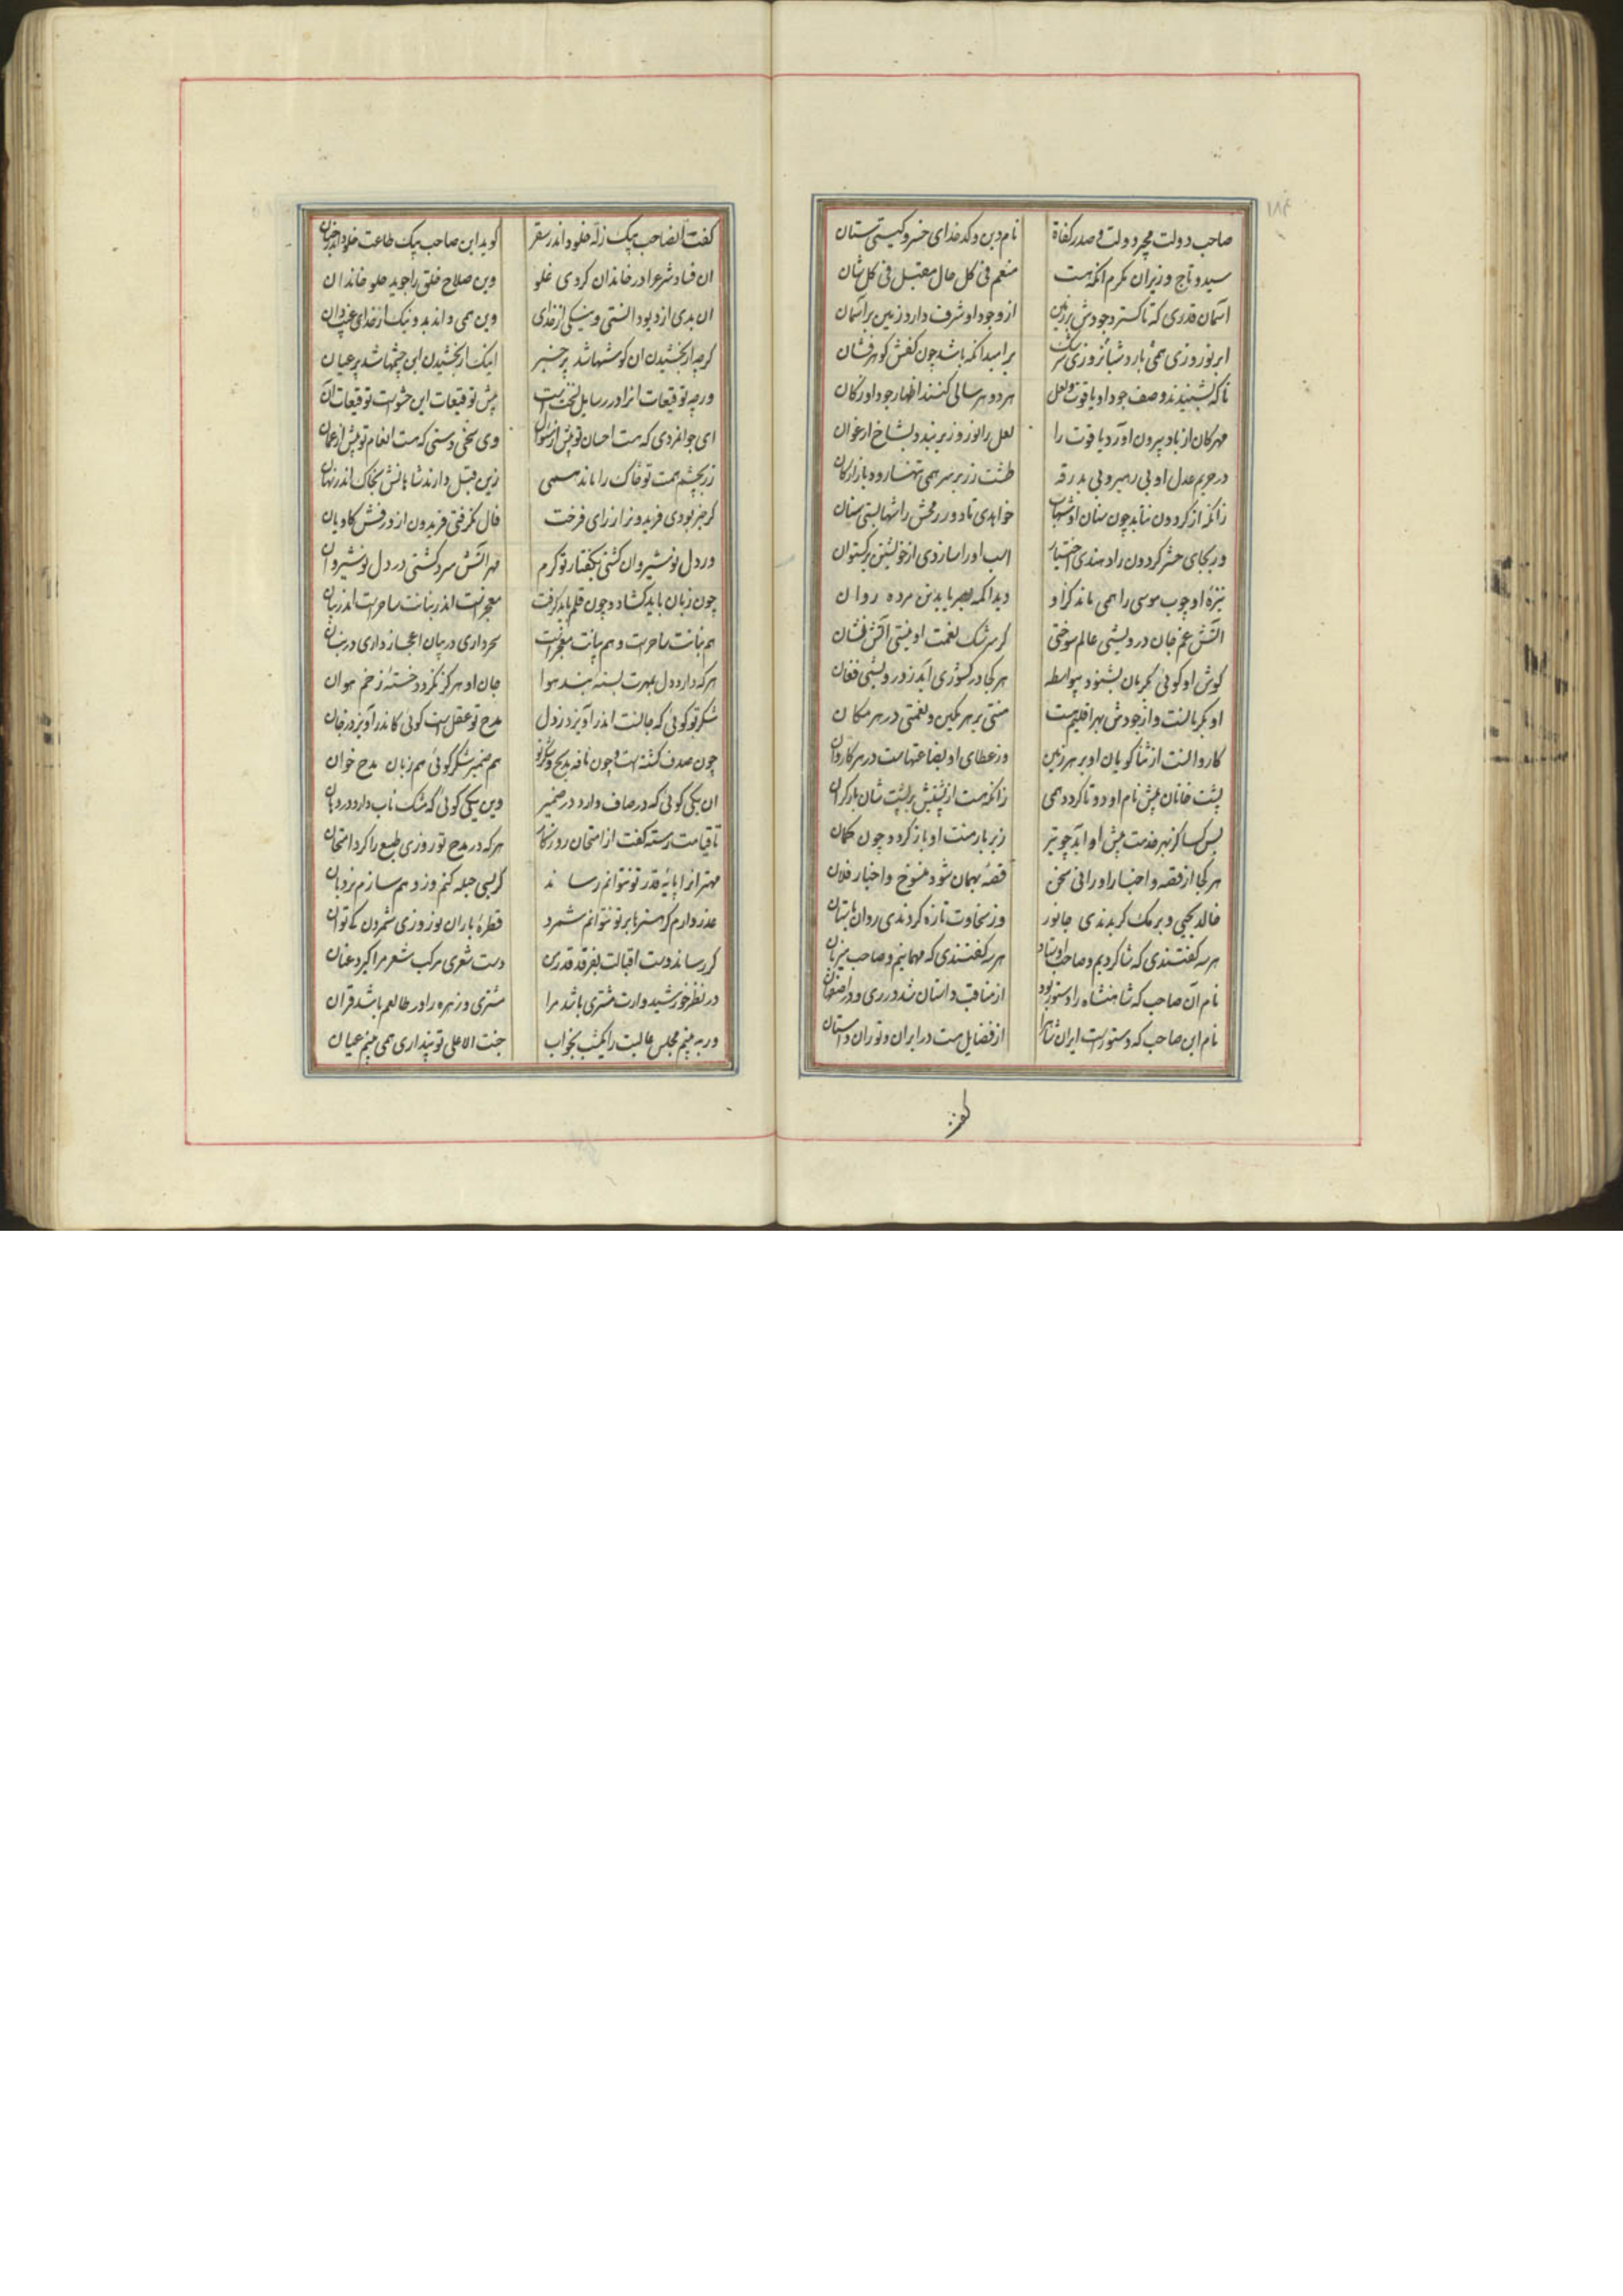 ۱۸۴
صاحب دولت مجیر دولت و صدر کفاة نام دین و کدخدای خسرو کیتی ستان
سید و تاج وزیران مکرم انکه هست منعم فی کل حال مقبل فی کل شان
آسمان قدری که تا کسترد جودش بر زمین از وجود او شرف دارد زمین بر آسمان
ابر نوروزی همی بارد شبانروزی بر امید انکه باشد چون کفش کوهرفشان
تا که بشنیدند وصف جود او یاقوت و لعل هر دو هر سالی کنند اظهار جود او ز کان
مهرکان از باد بیرون آورد یاقوت را لعل را نوروز بر بندد بشاخ ارغوان
در حریم عدل او بی رهبر و بی بدرقه طشت زر بر سر همی تنها رود بازارکان
زانکه از کردون نتابد چون سنان او شهاب خواهدی تا در رزمش را شهابستی سنان
ور بجای حشر کردون راد هندی اختیار اسب او را سازدی از خویشتن برکستوان
نیزه او چوب موسی را همی ماند کز او دید اکمه بصر یابد تن مرده روان
آتش غم جان درویشی عالم سوختی کر سرشک نعمت او نیستی آتش فشان
کوش او کوئی بکرمان بشنود بیواسطه هر کجا در کشوری آید ز درویشی فغان
او بکرمانست و از جودش بهر اقلیم هست منتی بر هر مکین و نعمتی در هر مکان
کاروانست از ثنا کویان او بر هر زمین وز عطای او بضاعتهاست در هر کاروان
پشت خانان پیش نام او دو تا کردد همی زانکه هست از پشتش بر پشت شان بار کران
بس کسا کز بهر خدمت پیش او آید چو تیر زیر بار منت او باز کردد چون کمان
هر کجا از قصه و اخبار او رانی سخن قصه بهمان شود منسوخ و اخبار فلان
خالد یحیی و برمک کر بدندی جانور وز سخاوت تازه کردندی روان باستان
هر سه کفتندی که شاکردیم و صاحب اوستاد هر سه کفتندی که مهمانیم و صاحب میزبان
نام آن صاحب که شاهنشاه را دستور بود از مناقب داستان شد در ری و در اصفهان
نام این صاحب که دستورست ایران شاه را از فضایل هست در ایران و توران داستان
کفت آنصاحب بیک زلة خلود اندر سقر کوید این صاحب بیک طاعت خلود اندر جنان
ان فساد شرع را در خاندان کردی غلو وین صلاح خلق را جوید علو خاندان
ان بدی از دیو دانستی و نیکی از خدای وین همی داند بد و نیک از خدای غیب دان
کرچه از بخشیدن ان کوشها شد پر خبر اینک از بخشیدن این چشمها شد پر عیان
ورچه توقیعات انرا در رسایل نکته است پیش توقیعات این حشوست توقیعات آن
ای جوانمردی که هست احسان تو بیش از سؤال وی سخی دستی که هست انعام تو بیش از عمان
زر بچشم همت تو خاک را ماند همی زین قبل دارند شاهانش بخاک اندر نهان
کر خبر بودی فریدونرا ز رای فرخت فال نکرفتی فریدون از درفش کاویان
ور دل نوشیروان کشتی بکفتار تو کرم مهر آتش سرد کشتی در دل نوشیروان
چون زبان باید کشاد و چون قلم باید کرفت معجزست اندر بنانت ساحرست اندر بیان
هم بنانت ساحرست و هم بیانت معجزست سحر داری در بیان اعجاز داری در بنان
هر که دارد دل بمهرت بسته بند هوا جان او هرکز نکردد خسته زخم هوان
شکر تو کوئی که جانست اندر آویزد ز دل مدح تو عقل است کوئی کاندر آویزد ز جان
چون صدف کشته است و چون نافه بمدح و شکر تو هم ضمیر شکرکوئی هم زبان مدح خوان
ان یکی کوئی که در صاف دارد در ضمیر وین یکی کوئی که مشک ناب دارد در دهان
تا قیامت رسته کفت از امتحان روزکار هر که در مدح تو روزی طبع را کرد امتحان
مهترا از پایه قدر تو نتوانم رساند کر بسی حیله کنم وز وهم سازم نردبان
عذر دارم کر هنرها بر تو نتوانم شمرد قطرهٔ باران نوروزی شمردن کی توان
کر رساند دست اقبالت بفرقد قدر من دست شعری مرکب شعر مرا کیرد عنان
در نظر خورشید وارت مشتری باشد مرا مشتری و زهره را در طالعم باشد قران
ور به بینم مجلس عالیت را یکشب بخواب جنت الاعلی تو پنداری همی بینم عیان